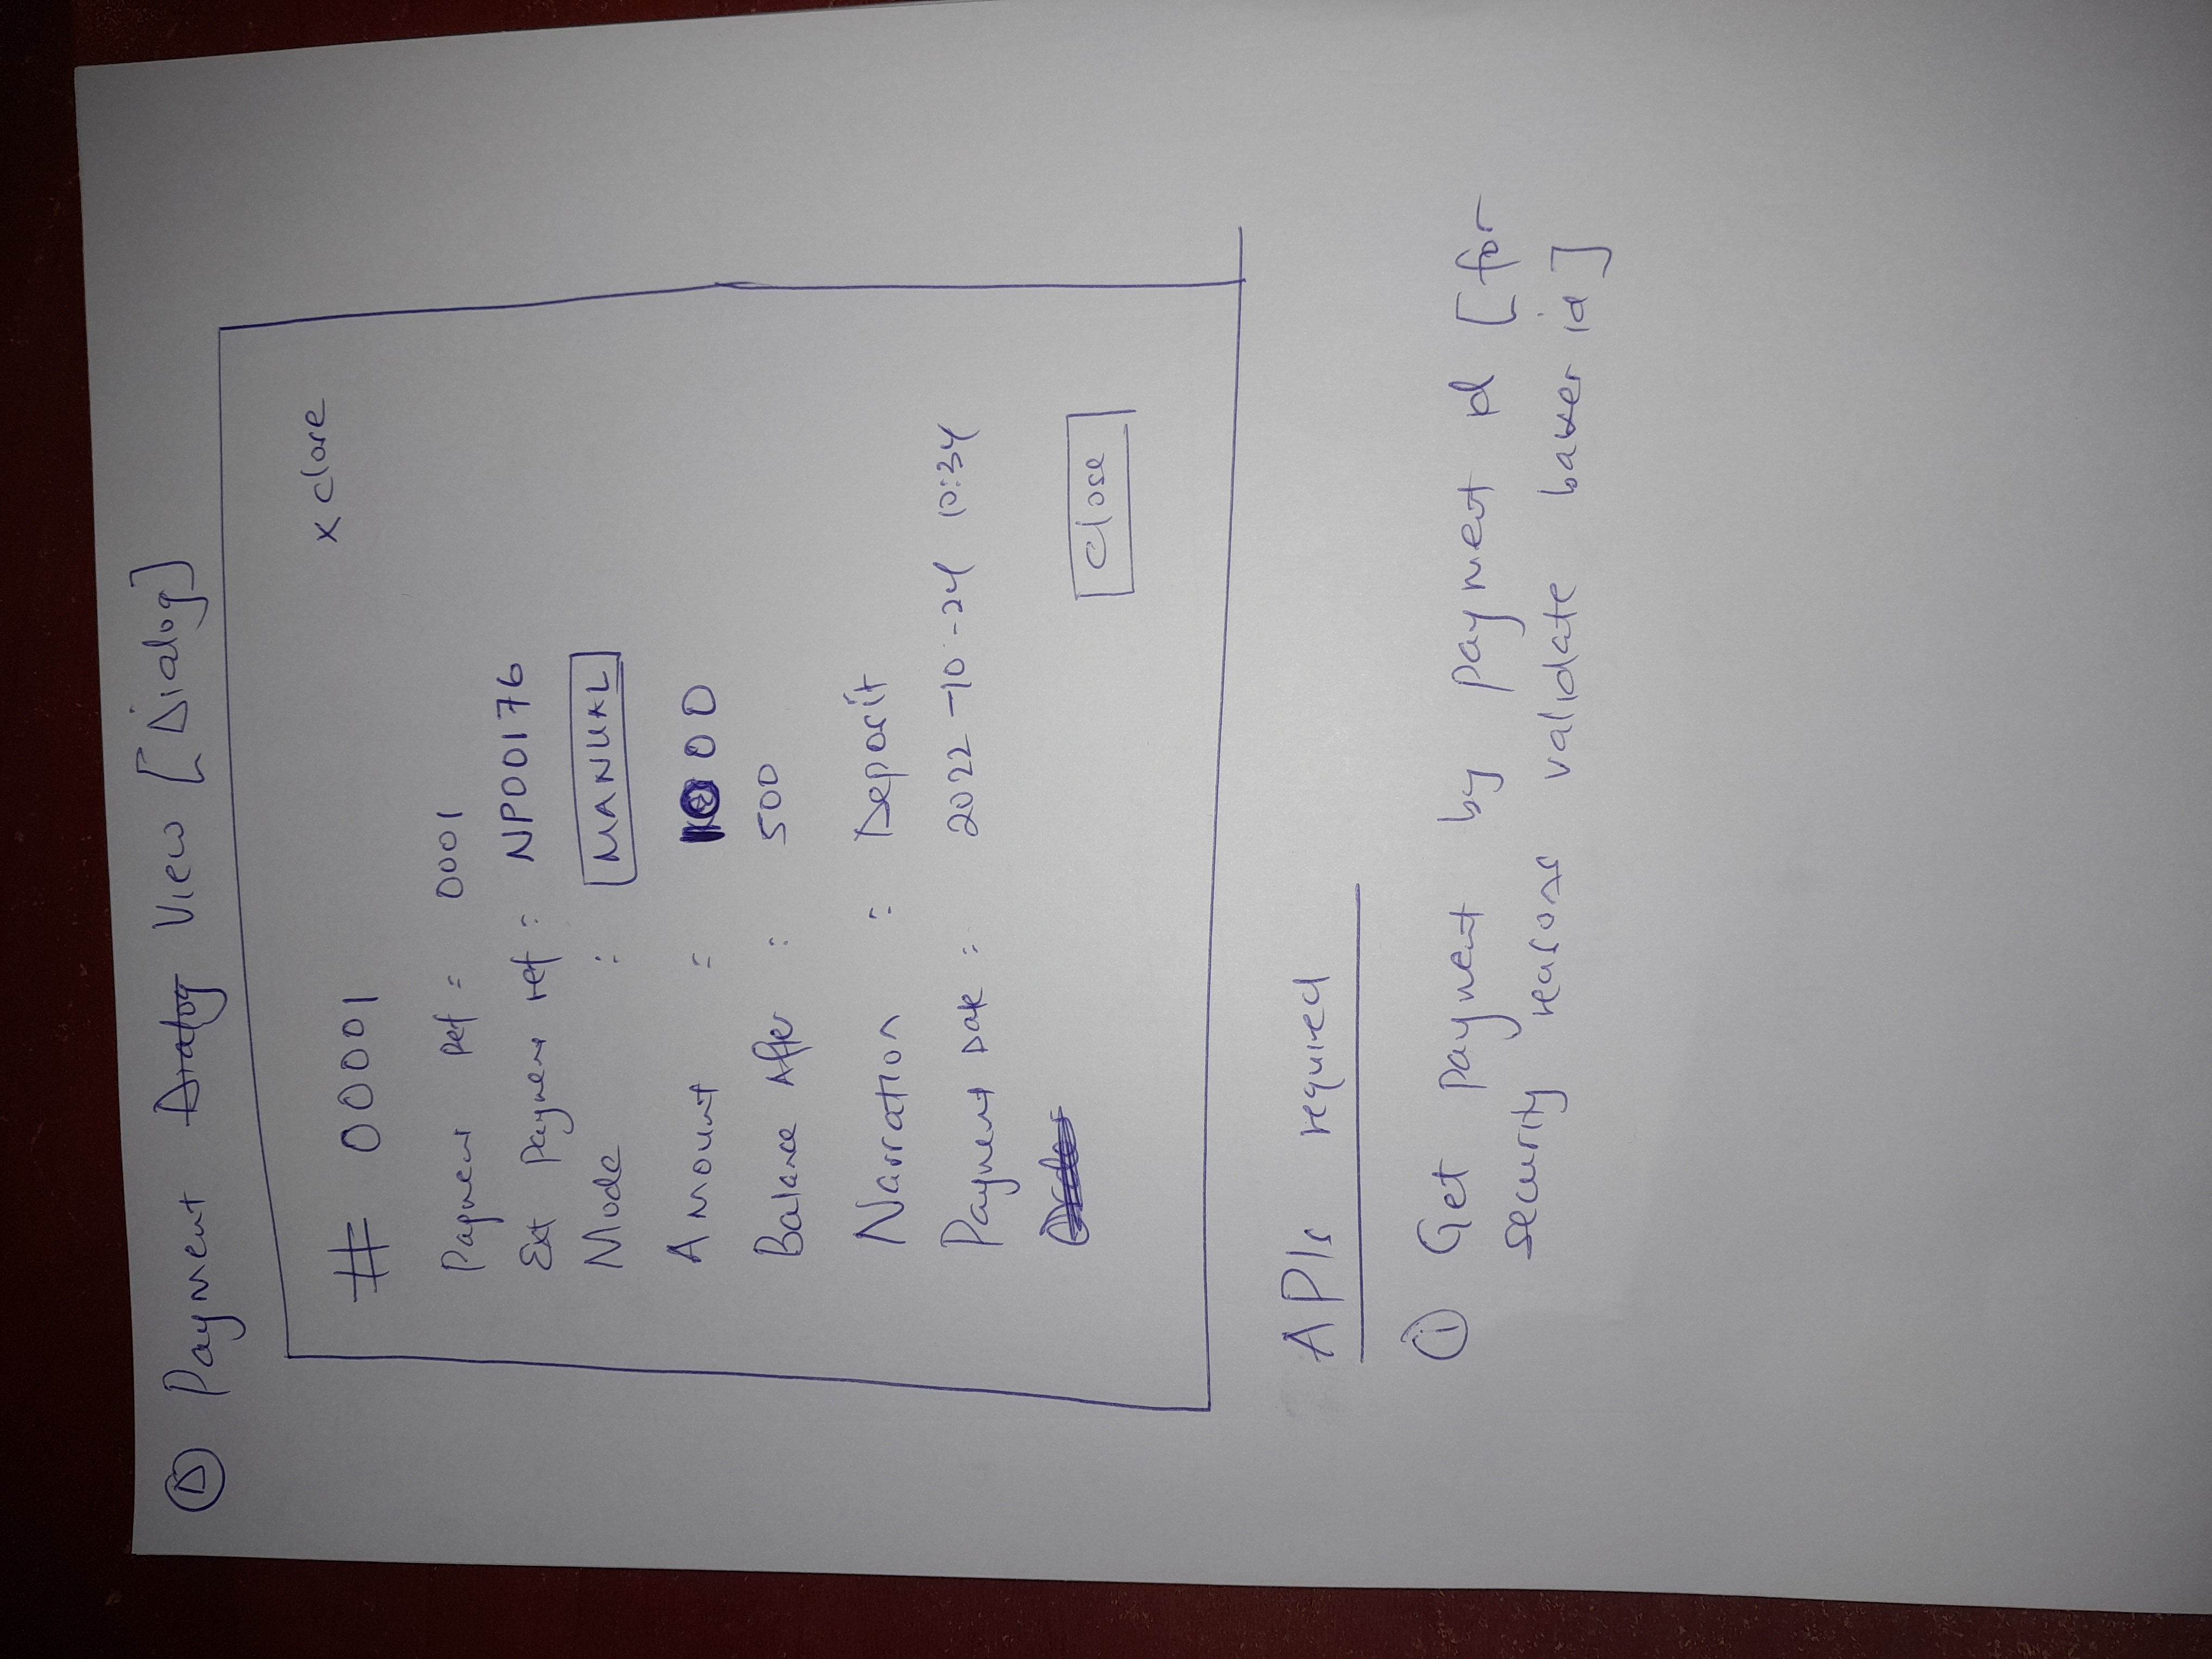 D Payment Dialog View [Dialog]
x close
# 00001
Payment Ref = 0001
Ext Payment ref : NP00176
Mode : MANUAL
Amount = 1000
Balance After : 500
Narration : Deposit
Payment Date : 2022-10-24 10:34
Order
Close
APIs required
① Get payment by payment id [for
security reasons validate baker id]